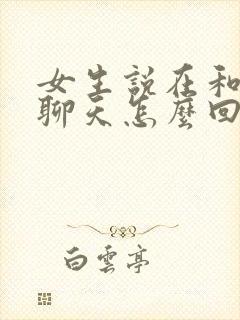 女生説在和
聊天怎麼回
白雲亭